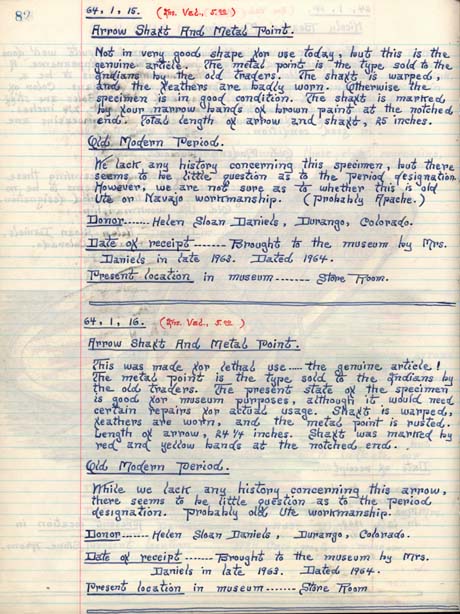 82
64, 1, 15. (Inv. Ved., 5.00)
Arrow Shaft And Metal Point.
Not in very good shape for use today, but this is the
genuine article. The metal point is the type sold to the
Indians by the old traders. The shaft is warped,
and the feathers are badly worn. Otherwise the
specimen is in good condition. The shaft is marked
by four narrow bands of brown paint at the notched
end. Total length of arrow and shaft, 25 inches.
Old Modern Period.
We lack any history concerning this specimen, but there
seems to be little question as to the period designation.
However, we are not sure as to whether this is old
Ute or Navajo workmanship. (Probably Apache.)
Donor..... Helen Sloan Daniels, Durango, Colorado.
Date of receipt ------ Brought to the museum by Mrs.
Daniels in late 1963. Dated 1964.
Present location in museum ------- Store Room.
64, 1, 16. 5.00)
Arrow Shaft And Metal Point.
This was made for lethal use ..... the genuine article!
The metal point is the type sold to the Indians by
the old traders. The present state of the specimen
is good for museum purposes, although it would need
certain repairs for actual usage. Shaft is warped,
feathers are worn, and the metal point is rusted.
Length of arrow, 24 1/4 inches. Shaft was marked by
red and yellow bands at the notched end.
Old Modern Period.
While we lack any history concerning this arrow,
there seems to be little question as to the period
designation. Probably old Ute workmanship.
Donor ----- Helen Sloan Daniels, Durango, Colorado.
Date of receipt ------ Brought to the museum by Mrs.
Daniels in late 1963. Dated 1964.
Present location in museum ------ Store Room